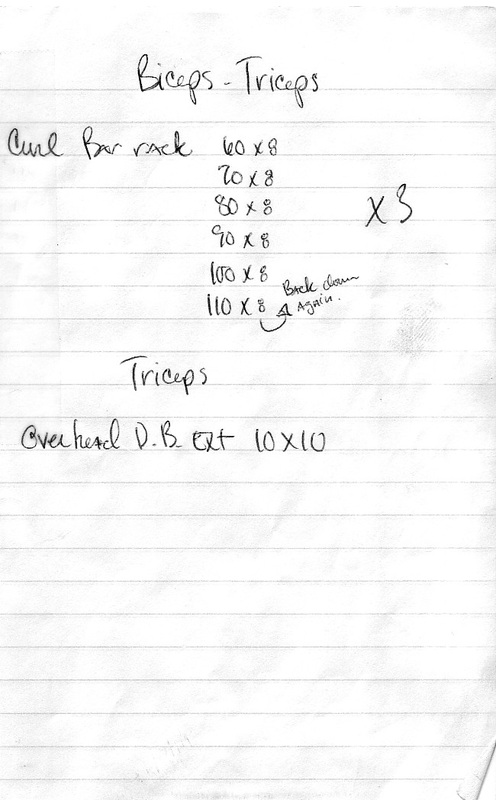 Biceps - Triceps
Curl Bar rack 60 x 8
70 x 8
80 x 8
x 3
90 x 8
100 x 8
Back down
110 x 8 Again.
Triceps
Overhead D.B. Ext 10 x 10